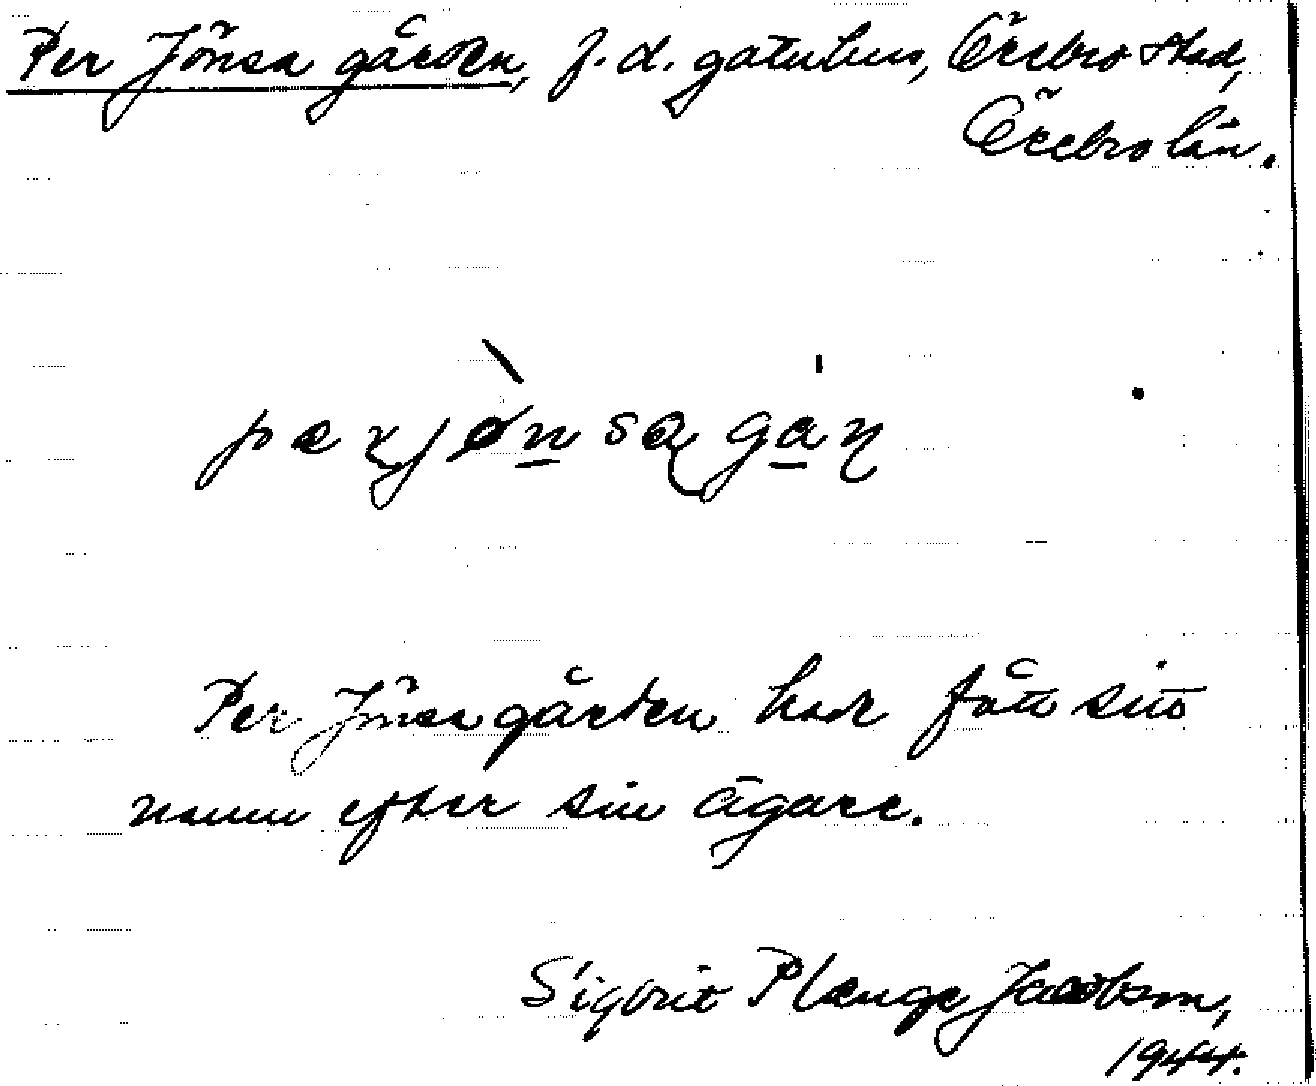 Per Jönsa gården, f.d. gatuhus, Örebro stad,
Örebro län.
Per Jönsa gården har fått sitt
namn efter sin ägare.
Sigbrit Plænge Jacobson,
1944.